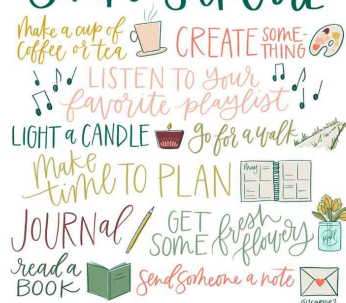 Make a cup of
Coffee or tea
CREATE SOME-
THING
LISTEN TO your
favorite playlist
LIGHT a CANDLE
go for a walk
Make
time TO PLAN
May
JOURNAL
GET
SOME fresh
flowers
read a
BOOK
Send someone a note